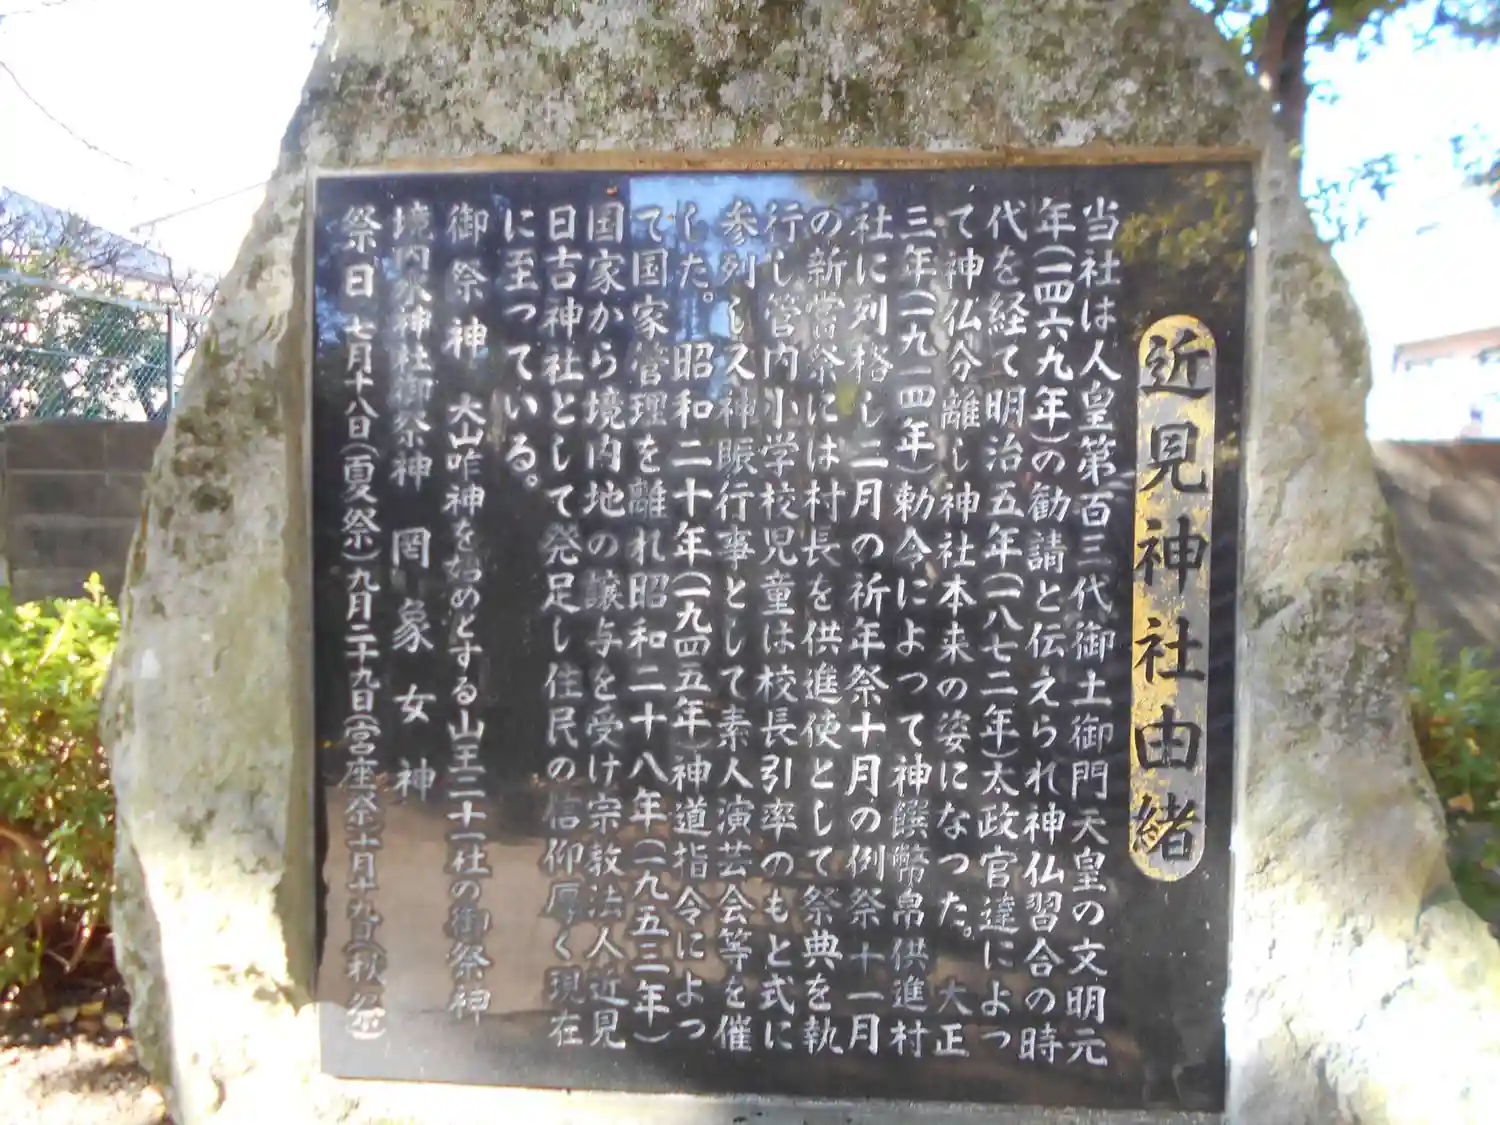 近見神社由緒
当社は人皇第百三代御土御門天皇の文明元
年(一四六九年)の勧請と伝えられ神仏習合の時
代を経て明治五年(一八七二年)太政官達によっ
て神仏分離し神社本来の姿になった。大正
三年(一九一四年)勅令によって神饌幣帛供進村
社に列格し二月の祈年祭十月の例祭十一月
の新嘗祭には村長を供進使として祭典を執
行し管内小学校児童は校長引率のもと式に
参列し又神賑行事として素人演芸会等を催
した。昭和二十年(一九四五年)神道指令によっ
て国家管理を離れ昭和二十八年(一九五三年)
国家から境内地の譲与を受け宗教法人近見
日吉神社として発足し住民の信仰厚く現在
に至っている。
御祭神 大山咋神を始めとする山王二十一社の御祭神
境内水神社御祭神 罔象女神
祭日 七月十八日(夏祭)九月二十九日(宮座祭)十月十九日(秋祭)